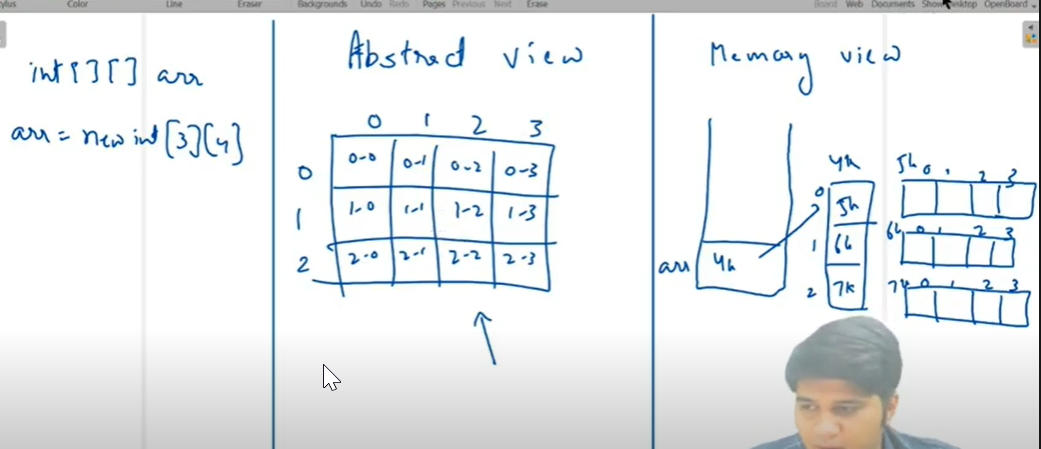 Stylus Color Line Eraser Backgrounds Undo Redo Pages Previous Next Erase Board Web Documents Show Desktop OpenBoard
int[][] arr
arr = new int[3][4]
Abstract view
0 1 2 3
0 0-0 0-1 0-2 0-3
1 1-0 1-1 1-2 1-3
2 2-0 2-1 2-2 2-3
Memory view
arr 4k
4k
0 5k
1 6k
2 7k
5k 0 1 2 3
6k 0 1 2 3
7k 0 1 2 3